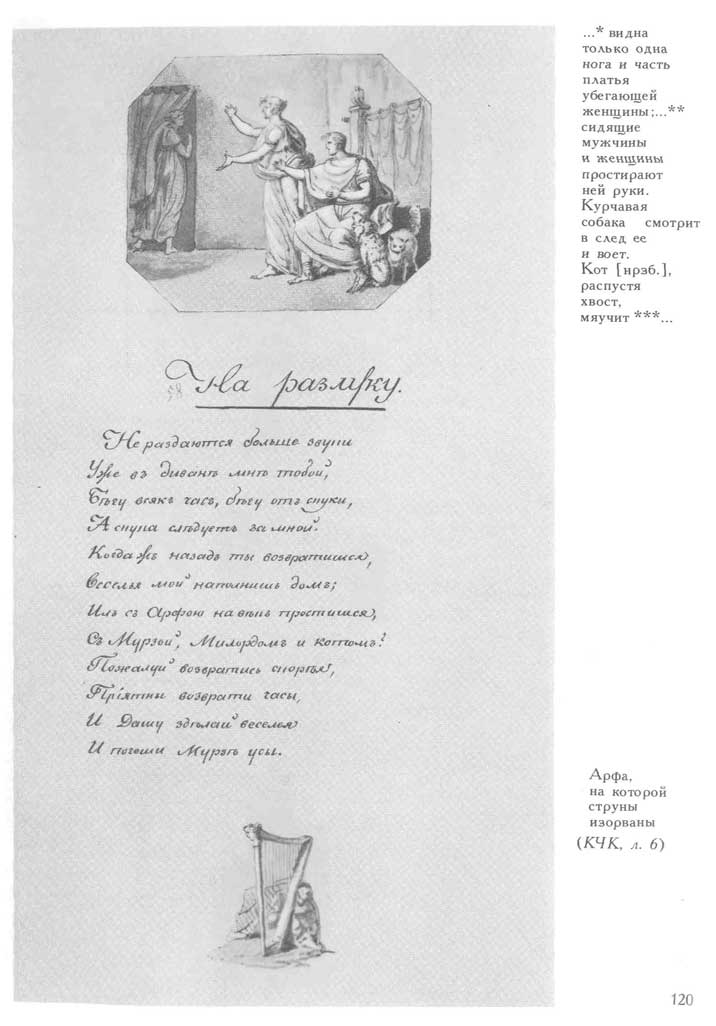 ...* видна
только одна
нога и часть
платья
убегающей
женщины;...**
сидящие
мужчины
и женщины
простирают
ней руки.
Курчавая
собака смотрит
в след ее
и воет.
Кот [нрзб.],
распустя
хвост,
мяучит ***...
На разлуку.
Не раздаются больше звуки
Уже въ диванѣ мнѣ твои,
Бѣгу всякъ часъ, бѣгу отъ скуки,
А скука слѣдуетъ за мной.
Когдажъ назадъ ты возвратишся,
Веселья мой наполнишь домъ;
Иль съ Арфою навѣкъ простишся,
Съ Мурзой, Милордомъ и котомъ?
Пожалуй возвратись скорѣя,
Пріятны возврати часы,
И Дашу здѣлай веселея
И почеши Мурзѣ усы.
Арфа,
на которой
струны
изорваны
(КЧК, л. 6)
120